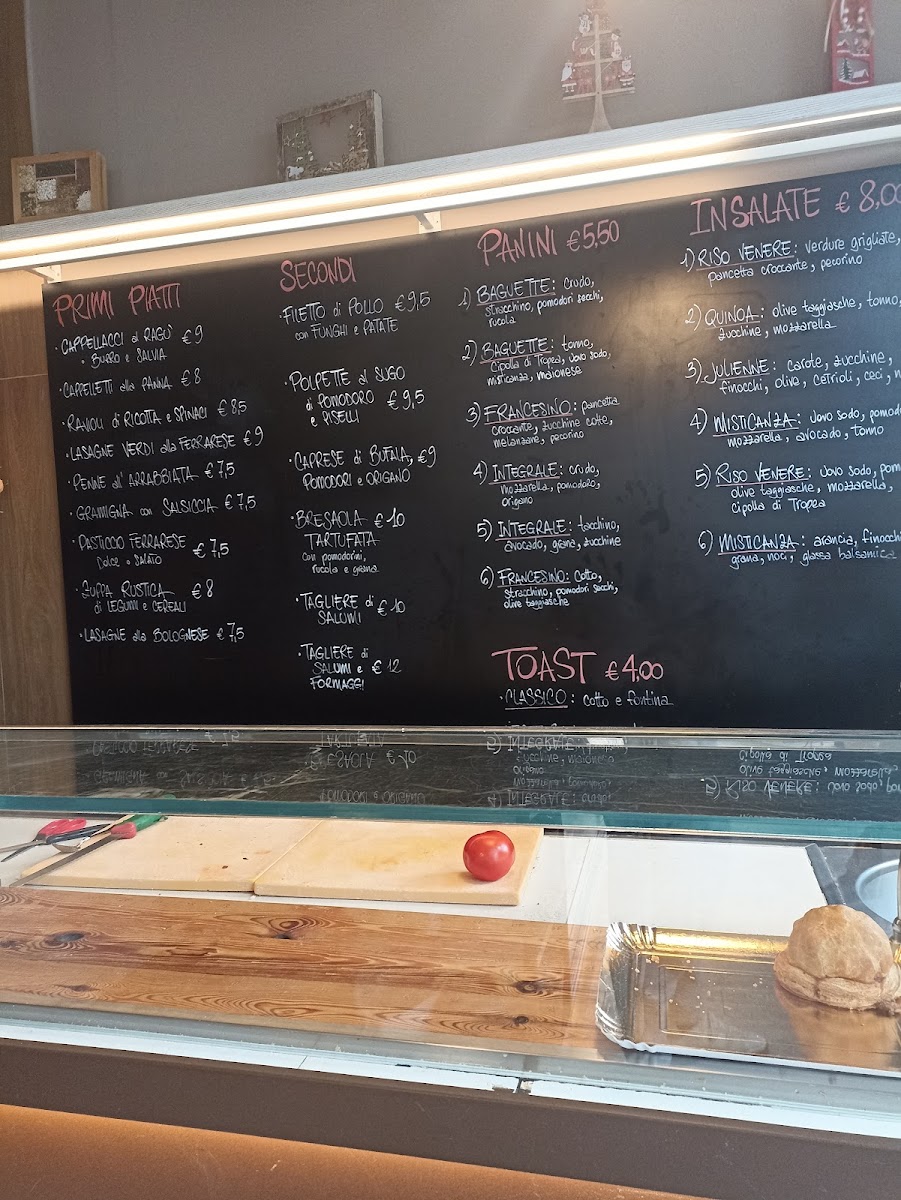 PRIMI PIATTI
• CAPPELLACCI al RAGÙ € 9
• BURRO e SALVIA
• CAPPELLETTI alla PANNA € 8
• RAVIOLI di RICOTTA e SPINACI € 8,5
• LASAGNE VERDI alla FERRARESE € 9
• PENNE all' ARRABBIATA € 7,5
• GRAMIGNA con SALSICCIA € 7,5
• PASTICCIO FERRARESE € 7,5
DOLCE o SALATO
• ZUPPA RUSTICA € 8
di LEGUMI e CEREALI
• LASAGNE alla BOLOGNESE € 7,5
SECONDI
• FILETTO di POLLO € 9,5
con FUNGHI e PATATE
• POLPETTE al SUGO
di POMODORO € 9,5
e PISELLI
• CAPRESE di BUFALA, € 9
POMODORI e ORIGANO
• BRESAOLA € 10
TARTUFATA
con pomodorini,
rucola e grana
• TAGLIERE di € 10
SALUMI
• TAGLIERE di
SALUMI e € 12
FORMAGGI
PANINI € 5,50
1) BAGUETTE: crudo,
stracchino, pomodori secchi,
rucola
2) BAGUETTE: tonno,
cipolla di Tropea, uovo sodo,
misticanza, maionese
3) FRANCESINO: pancetta
croccante, zucchine cotte,
melanzane, pecorino
4) INTEGRALE: crudo,
mozzarella, pomodoro,
origano
5) INTEGRALE: tacchino,
avocado, grana, zucchine
6) FRANCESINO: cotto,
stracchino, pomodori secchi,
olive taggiasche
TOAST € 4,00
• CLASSICO: cotto e fontina
INSALATE € 8,00
1) RISO VENERE: verdure grigliate,
pancetta croccante, pecorino
2) QUINOA: olive taggiasche, tonno,
zucchine, mozzarella
3) JULIENNE: carote, zucchine,
finocchi, olive, cetrioli, ceci,
4) MISTICANZA: uovo sodo,
mozzarella, avocado, tonno
5) RISO VENERE: uovo sodo,
olive taggiasche, mozzarella,
cipolla di Tropea
6) MISTICANZA: arancia, finocchi
grana, noci, glassa balsamica